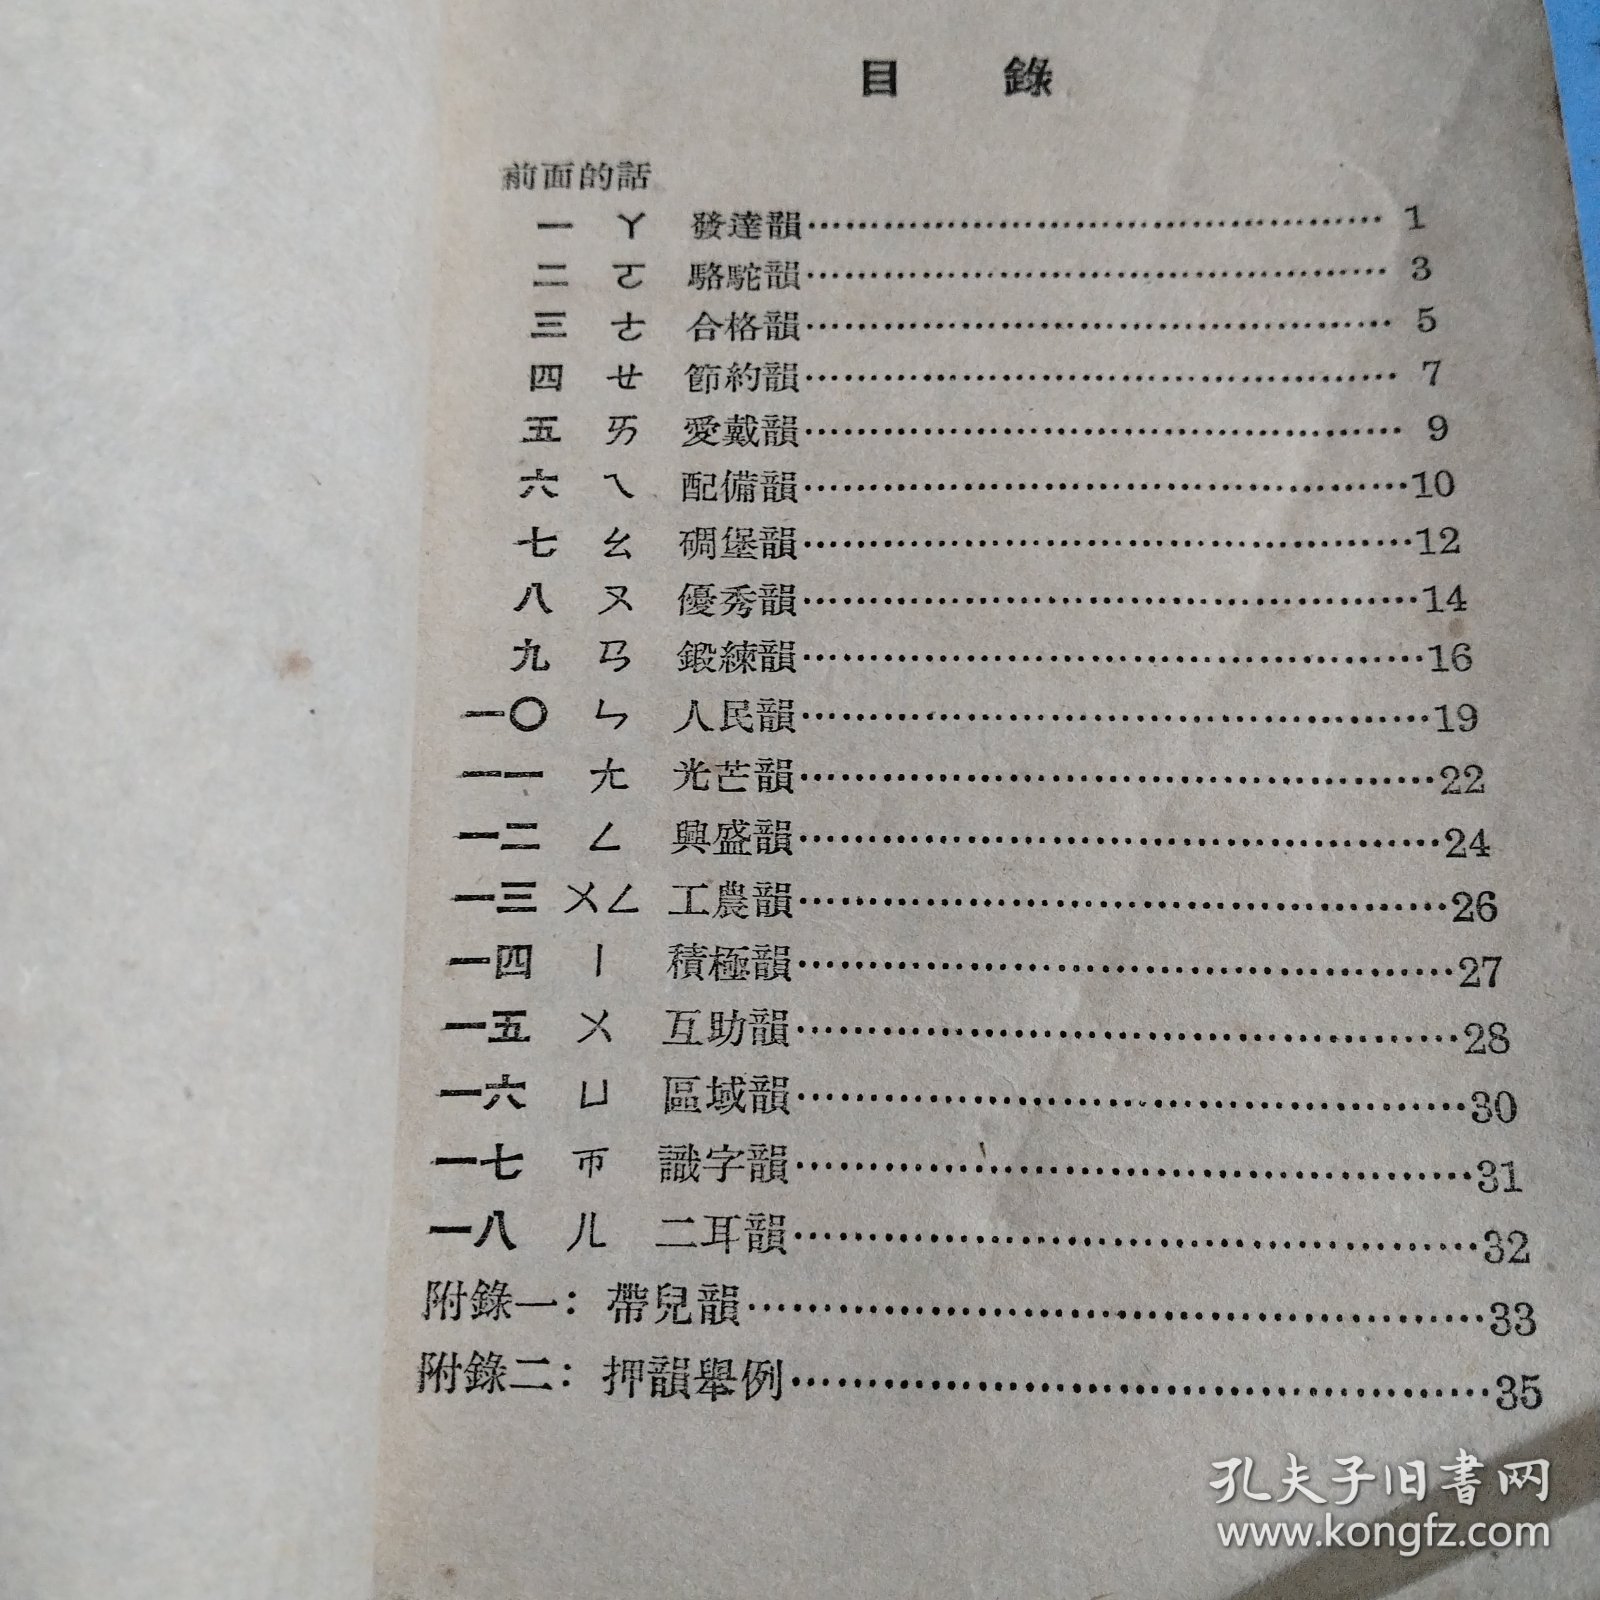 目　錄
前面的話
一 ㄚ 發達韻 1
二 ㄛ 駱駝韻 3
三 ㄜ 合格韻 5
四 ㄝ 節約韻 7
五 ㄞ 愛戴韻 9
六 ㄟ 配備韻 10
七 ㄠ 碉堡韻 12
八 ㄡ 優秀韻 14
九 ㄢ 鍛練韻 16
一〇 ㄣ 人民韻 19
一一 ㄤ 光芒韻 22
一二 ㄥ 興盛韻 24
一三 ㄨㄥ 工農韻 26
一四 ㄧ 積極韻 27
一五 ㄨ 互助韻 28
一六 ㄩ 區域韻 30
一七 ㄭ 識字韻 31
一八 ㄦ 二耳韻 32
附錄一：帶兒韻 33
附錄二：押韻舉例 35
孔夫子旧書网
www.kongfz.com